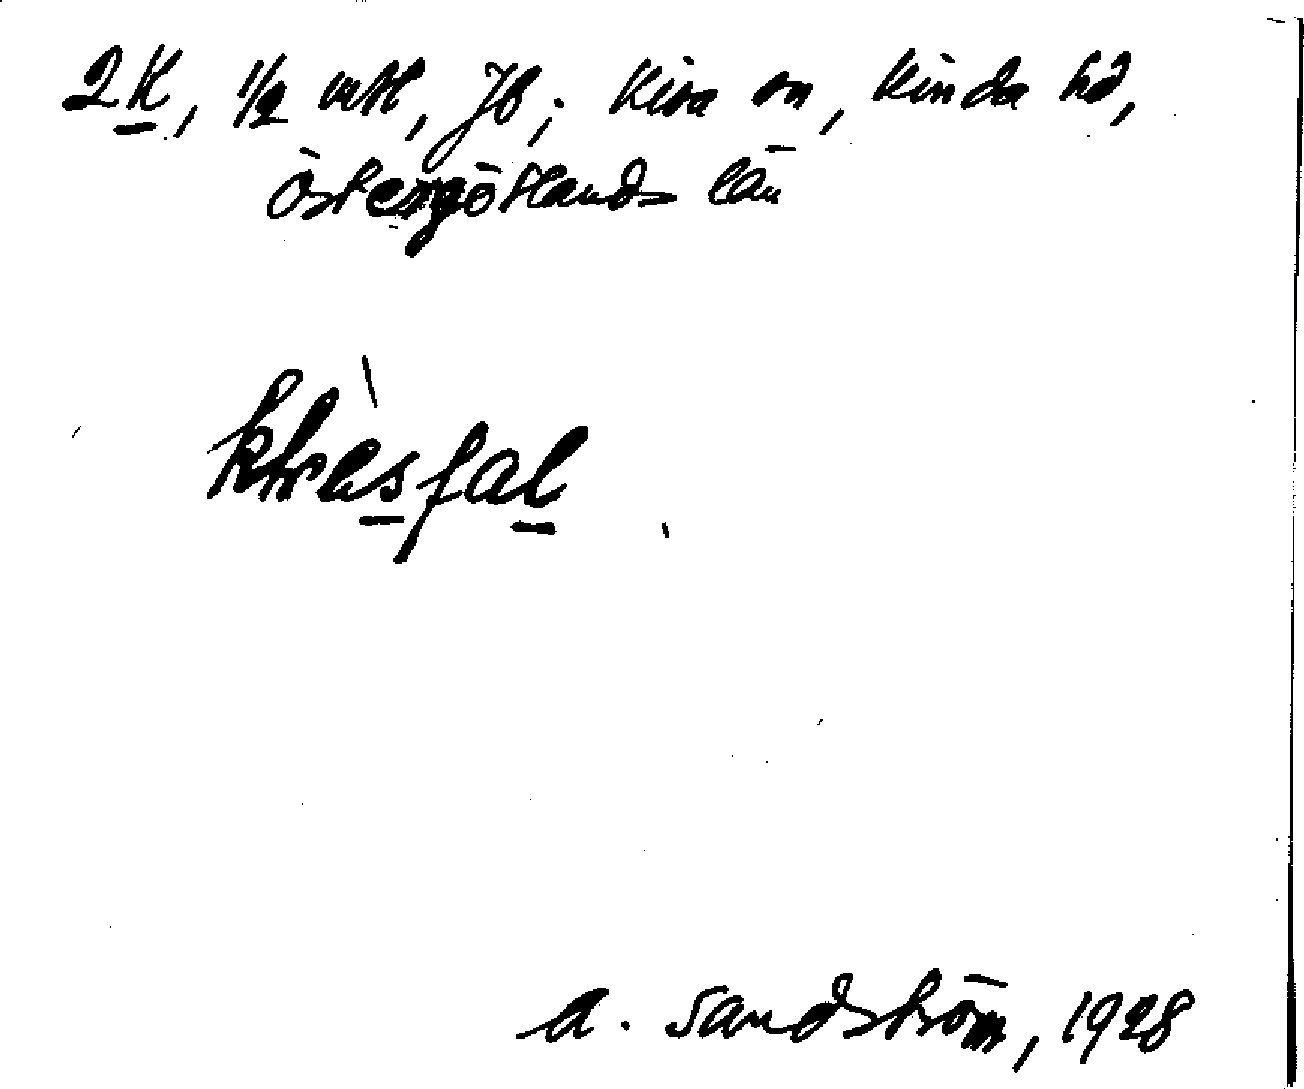 2K, 1/2 mtl, Jb; Kisa sn, Kinda hd,
Östergötlands län
A. Sandström, 1928